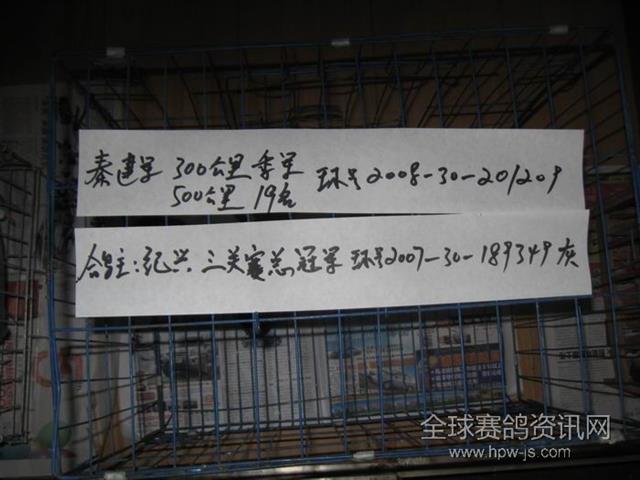 秦建学 300公里季军 环号2008-30-201209
500公里 19名
合主:纪兴. 三关赛总冠军 环号2007-30-189349灰
全球赛鸽资讯网
www.hpw-js.com